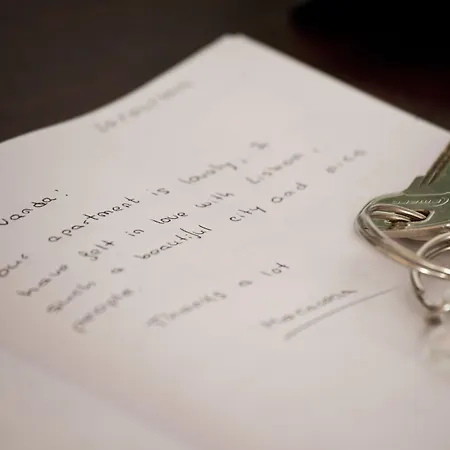 Wanda:
our apartment is lovely, I
have felt in love with Lisbon,
such a beautiful city and nice
people.
Thanks a lot
Macarena